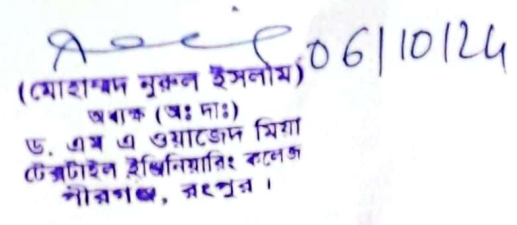 06/10/24
(মোহাম্মদ নুরুল ইসলাম)
অধ্যক্ষ (অঃ দাঃ)
ড. এম এ ওয়াজেদ মিয়া
টেক্সটাইল ইঞ্জিনিয়ারিং কলেজ
পীরগঞ্জ, রংপুর।